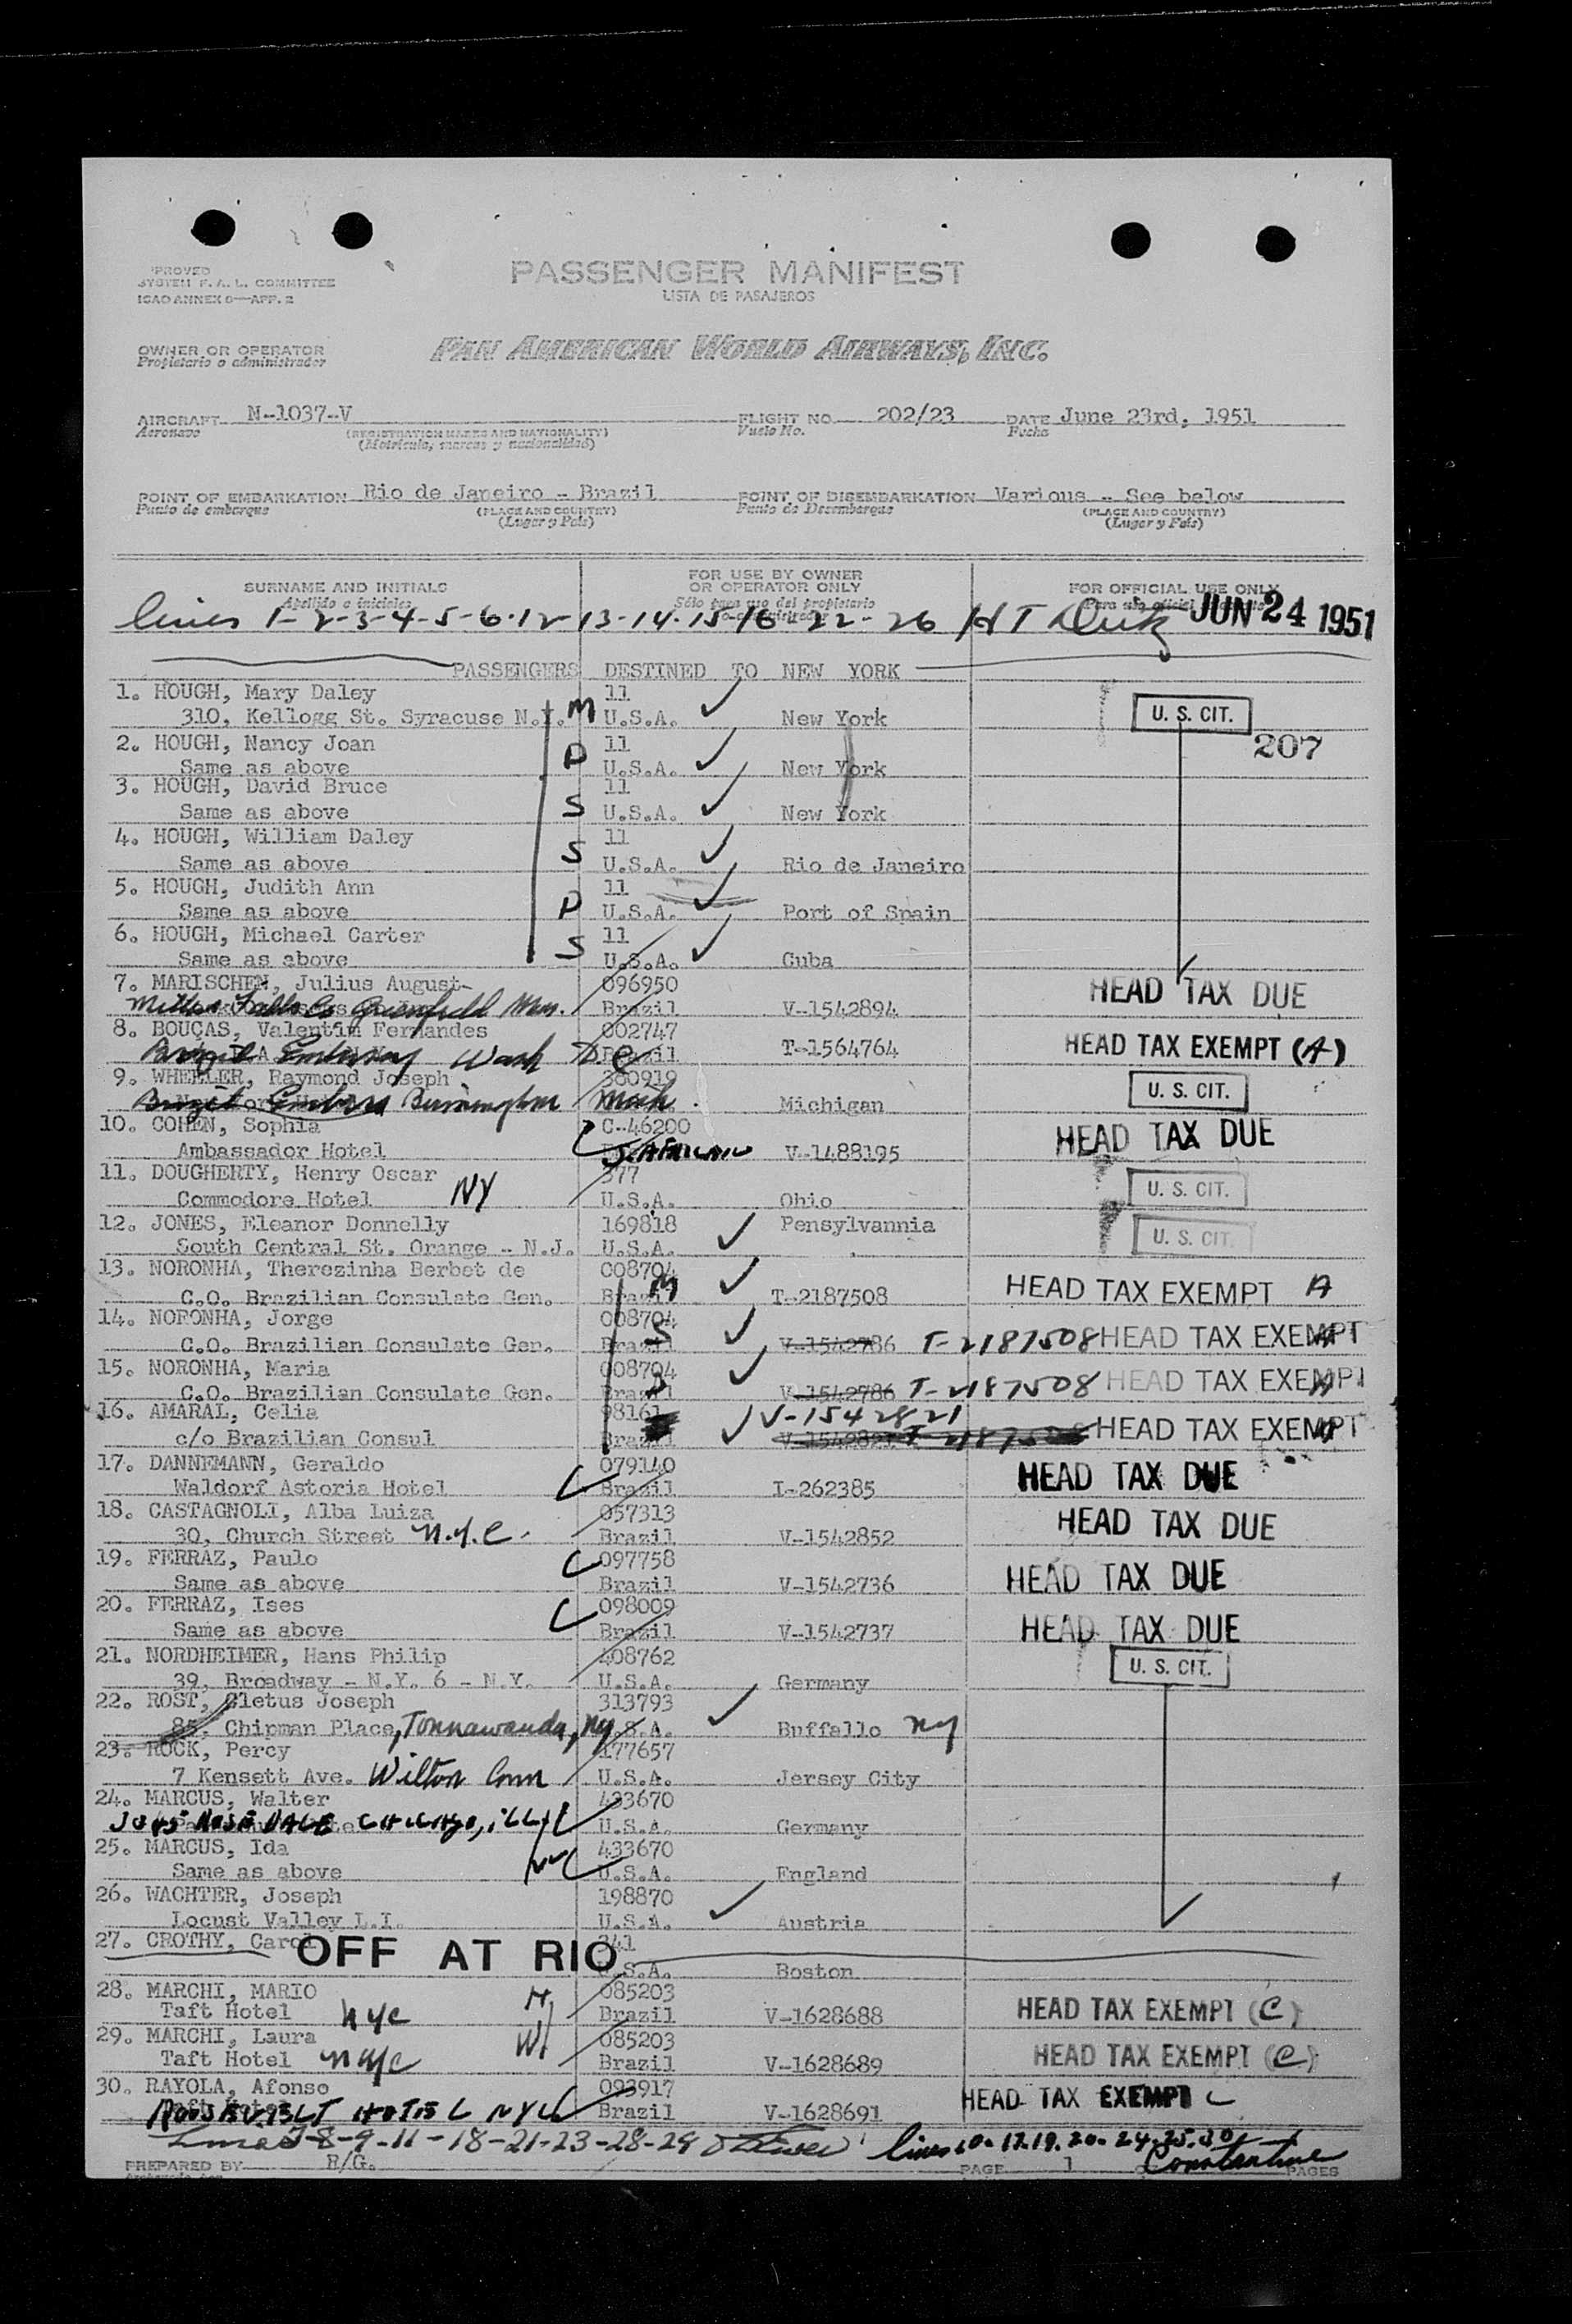 PROVED
SYSTEM F. A. L. COMMITTEE
ICAO ANNEX 9—APP. 2
PASSENGER MANIFEST
LISTA DE PASAJEROS
OWNER OR OPERATOR
Propietario o administrador
PAN AMERICAN WORLD AIRWAYS, INC.
AIRCRAFT N-1037-V FLIGHT NO. 202/23 DATE June 23rd, 1951
Aeronave (REGISTRATION MARKS AND NATIONALITY) Vuelo No. Fecha
(Matrícula, marcas y nacionalidad)
POINT OF EMBARKATION Rio de Janeiro - Brazil POINT OF DISEMBARKATION Various - See below
Punto de embarque (PLACE AND COUNTRY) Punto de Desembarque (PLACE AND COUNTRY)
(Lugar y País) (Lugar y País)
SURNAME AND INITIALS FOR USE BY OWNER OR OPERATOR ONLY FOR OFFICIAL USE ONLY
Apellido e iniciales Sólo para uso del propietario Para uso oficial
lines 1-2-3-4-5-6-12-13-14-15-16-22-26 JUN 24 1951
PASSENGERS DESTINED TO NEW YORK
1. HOUGH, Mary Daley 11
310, Kellogg St. Syracuse N.Y. M U.S.A. New York U. S. CIT.
2. HOUGH, Nancy Joan 11 207
Same as above D U.S.A. New York
3. HOUGH, David Bruce 11
Same as above S U.S.A. New York
4. HOUGH, William Daley 11
Same as above S U.S.A. Rio de Janeiro
5. HOUGH, Judith Ann 11
Same as above D U.S.A. Port of Spain
6. HOUGH, Michael Carter 11
Same as above S U.S.A. Cuba
7. MARISCHEN, Julius August 096950 HEAD TAX DUE
Millers Falls Co Greenfield Brazil V-1542894
8. BOUÇAS, Valentim Fernandes 002747
Embassy Wash D.C. T-1564764 HEAD TAX EXEMPT (A)
9. WHEELER, Raymond Joseph 380919 U. S. CIT.
Birmingham Mich. Michigan
10. COHEN, Sophia C-46200 HEAD TAX DUE
Ambassador Hotel S. AFRICAN V-1488195
11. DOUGHERTY, Henry Oscar 377
Commodore Hotel NY U.S.A. Ohio U. S. CIT.
12. JONES, Eleanor Donnelly 169818 Pensylvannia
South Central St. Orange - N.J. U.S.A. U. S. CIT.
13. NORONHA, Therezinha Berbet de 008704
C.O. Brazilian Consulate Gen. M Brazil T-2187508 HEAD TAX EXEMPT A
14. NORONHA, Jorge 008704
C.O. Brazilian Consulate Gen. S Brazil V-1542786 T-2187508 HEAD TAX EXEMPT
15. NORONHA, Maria 008704
C.O. Brazilian Consulate Gen. D Brazil V-1542786 T-2187508 HEAD TAX EXEMPT
16. AMARAL, Celia 98161 V-1542821
c/o Brazilian Consul Brazil V-1542821 HEAD TAX EXEMPT
17. DANNEMANN, Geraldo 079140
Waldorf Astoria Hotel Brazil I-262385 HEAD TAX DUE
18. CASTAGNOLI, Alba Luiza 057313
30, Church Street N.Y.C. Brazil V-1542852 HEAD TAX DUE
19. FERRAZ, Paulo 097758
Same as above Brazil V-1542736 HEAD TAX DUE
20. FERRAZ, Ises 098009
Same as above Brazil V-1542737 HEAD TAX DUE
21. NORDHEIMER, Hans Philip 408762
39, Broadway - N.Y. 6 - N.Y. U.S.A. Germany U. S. CIT.
22. ROST, Cletus Joseph 313793
85, Chipman Place, Tonnawanda, NY U.S.A. Buffallo NY
23. ROCK, Percy 177657
7 Kensett Ave. Wilton Conn U.S.A. Jersey City
24. MARCUS, Walter 433670
ROSEDALE CHICAGO, ILL U.S.A. Germany
25. MARCUS, Ida 433670
Same as above U.S.A. England
26. WACHTER, Joseph 198870
Locust Valley L.I. U.S.A. Austria
27. CROTHY, Carol 341
OFF AT RIO U.S.A. Boston
28. MARCHI, MARIO 085203
Taft Hotel NYC H Brazil V-1628688 HEAD TAX EXEMPT (C)
29. MARCHI, Laura 085203
Taft Hotel NYC W Brazil V-1628689 HEAD TAX EXEMPT (C)
30. RAYOLA, Afonso 093917
ROOSEVELT HOTEL NYC Brazil V-1628691 HEAD TAX EXEMPT C
Lines 7-8-9-11-18-21-23-28-29 lines 10-17-19-20-24-25-30
PREPARED BY R/G. PAGE 1 Constantine PAGES